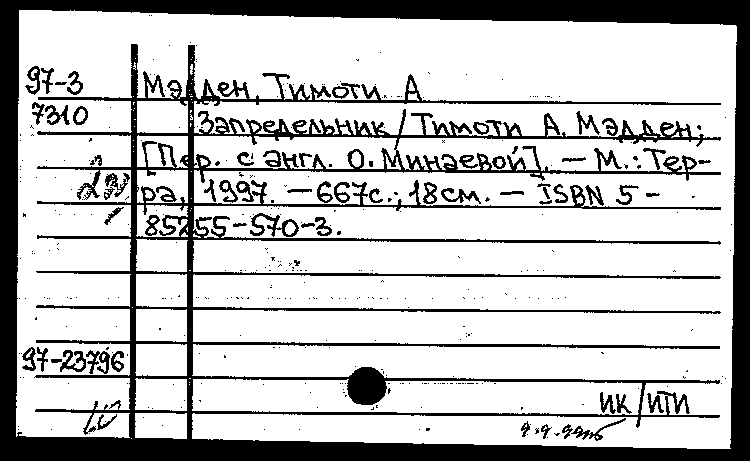 97-3 Мэдден, Тимоти А
7310 Запредельник / Тимоти А. Мэдден;
[Пер. с англ. О. Минаевой]. — М.: Тер-
ра, 1997. — 667с.; 18см. — ISBN 5-
85255-570-3.
97-23796
ИК/ИТИ